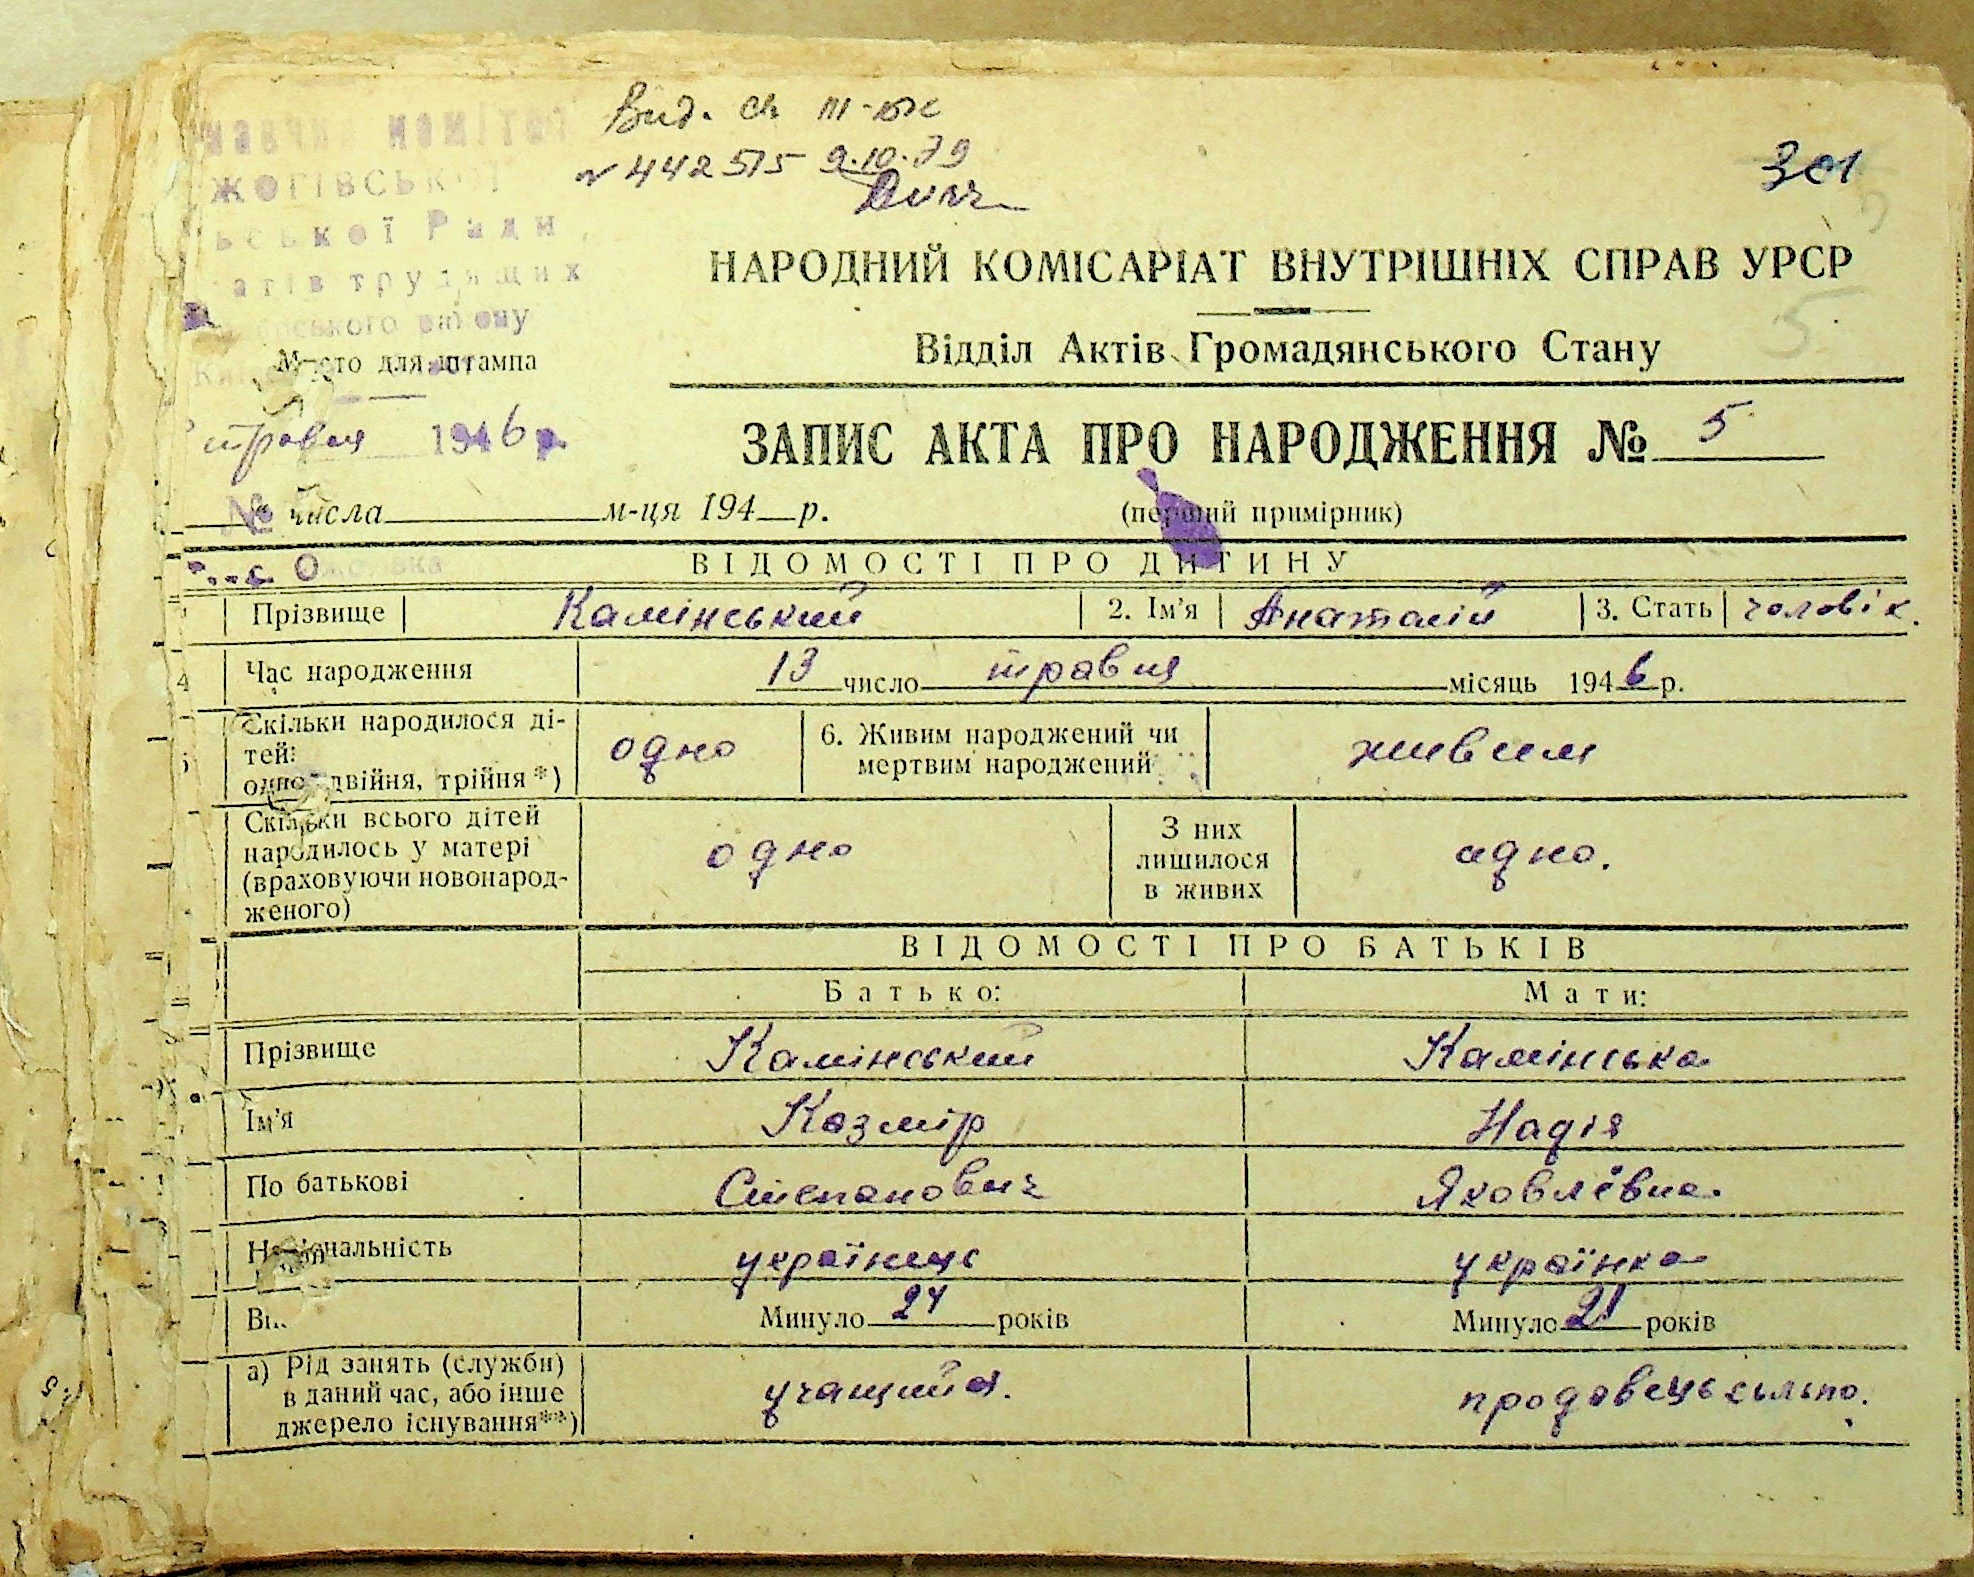 Вид. св III-БК
№ 442515 9.10.79
301
ЖОГІВСЬКОЇ
ської Ради
атів трудящих
ського району
Місто для штампа
травня 1946 р.
№
с. Ожогівка
НАРОДНИЙ КОМІСАРІАТ ВНУТРІШНІХ СПРАВ УРСР
5
Відділ Актів Громадянського Стану
ЗАПИС АКТА ПРО НАРОДЖЕННЯ № 5
числа м-ця 194 р. (перший примірник)
ВІДОМОСТІ ПРО ДИТИНУ
Прізвище Камінський 2. Ім'я Анатолій 3. Стать чоловік.
4 Час народження 13 число травня місяць 1946 р.
5 Скільки народилося дітей: одно, двійня, трійня*) одно 6. Живим народжений чи мертвим народжений живим
Скільки всього дітей народилось у матері (враховуючи новонародженого) одно З них лишилося в живих адно.
ВІДОМОСТІ ПРО БАТЬКІВ
Батько: Мати:
Прізвище Камінський Камінська
Ім'я Казмір Надія
По батькові Степанович Яковлєвна
Національність українець українка
Вік Минуло 24 років Минуло 21 років
а) Рід занять (служби) в даний час, або інше джерело існування**) учащийся. продавець сільпо.